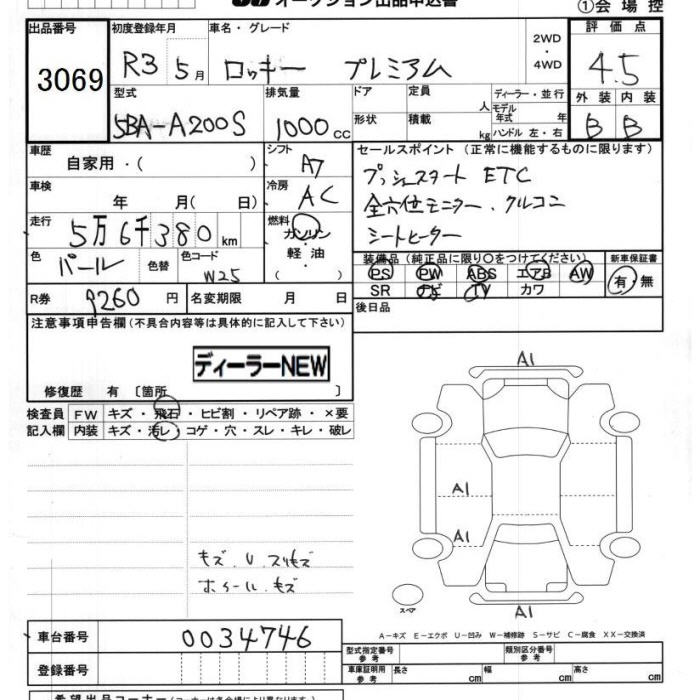 オークション出品申込書
①会場控
出品番号
3069
初度登録年月
R3 5月
車名・グレード
ロッキー プレミアム
2WD
・
4WD
評価点
4.5
型式
5BA-A200S
排気量
1000 cc
ドア
定員
人
形状
積載
kg
ディーラー・並行
モデル年式 年
ハンドル 左・右
外装 内装
B B
車歴
自家用・( )
シフト
A7
車検
年 月( 日)
冷房
AC
走行
5万6千380km
燃料
ガソリン
・
軽油
( )
色
パール
色替
色コード
W25
R券
9260 円
名変期限 月 日
セールスポイント (正常に機能するものに限ります)
プッシュスタート ETC
全方位モニター、クルコン
シートヒーター
装備品(純正品に限り○をつけてください)
新車保証書
PS PW ABS エアB AW
SR ナビ TV カワ
有・無
後日品
注意事項申告欄(不具合内容等は具体的に記入して下さい)
ディーラーNEW
修復歴 有 〔箇所 〕
検査員記入欄
FW キズ・飛石・ヒビ割・リペア跡・×要
内装 キズ・汚レ・コゲ・穴・スレ・キレ・破レ
キズ、U、スリキズ
ホイール、キズ
A1
A1
A1
A1
スペア
A-キズ E-エクボ U-凹み W-補修跡 S-サビ C-腐食 XX-交換済
車台番号
0034746
登録番号
型式指定番号
参考
類別区分番号
参考
車庫証明用
参考
長さ cm 幅 cm 高さ cm
希望出品コーナー(コーナーは各会場により異なります)